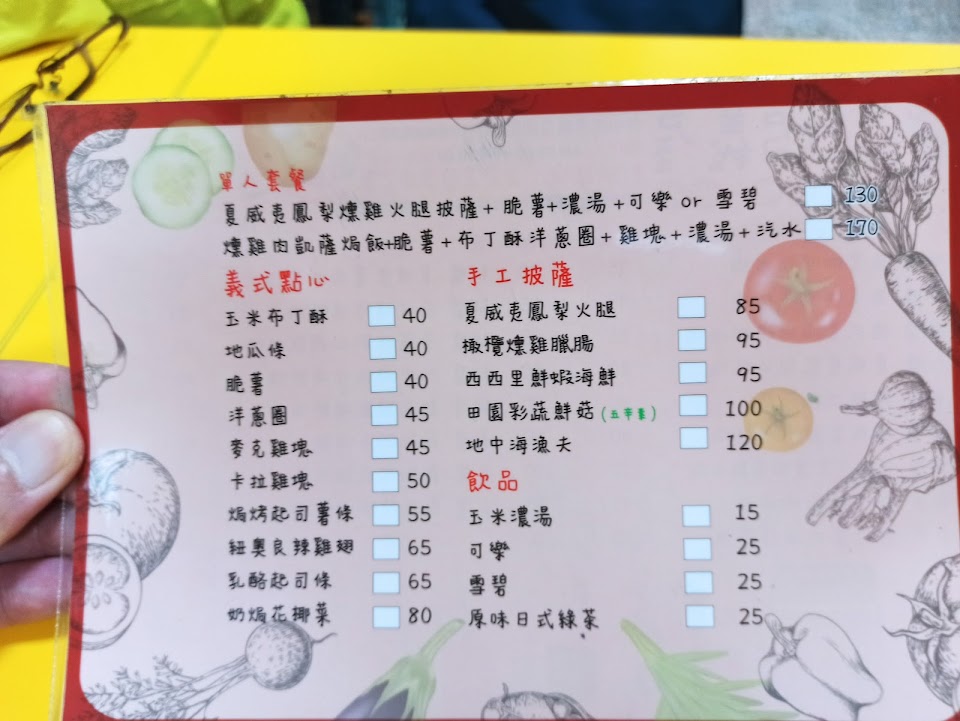 單人套餐
夏威夷鳳梨燻雞火腿披薩+脆薯+濃湯+可樂 or 雪碧 130
燻雞肉凱薩焗飯+脆薯+布丁酥洋蔥圈+雞塊+濃湯+汽水 170
義式點心
玉米布丁酥 40
地瓜條 40
脆薯 40
洋蔥圈 45
麥克雞塊 45
卡拉雞塊 50
焗烤起司薯條 55
紐奧良辣雞翅 65
乳酪起司條 65
奶焗花椰菜 80
手工披薩
夏威夷鳳梨火腿 85
橄欖燻雞臘腸 95
西西里鮮蝦海鮮 95
田園彩蔬鮮菇(五辛素) 100
地中海漁夫 120
飲品
玉米濃湯 15
可樂 25
雪碧 25
原味日式綠茶 25